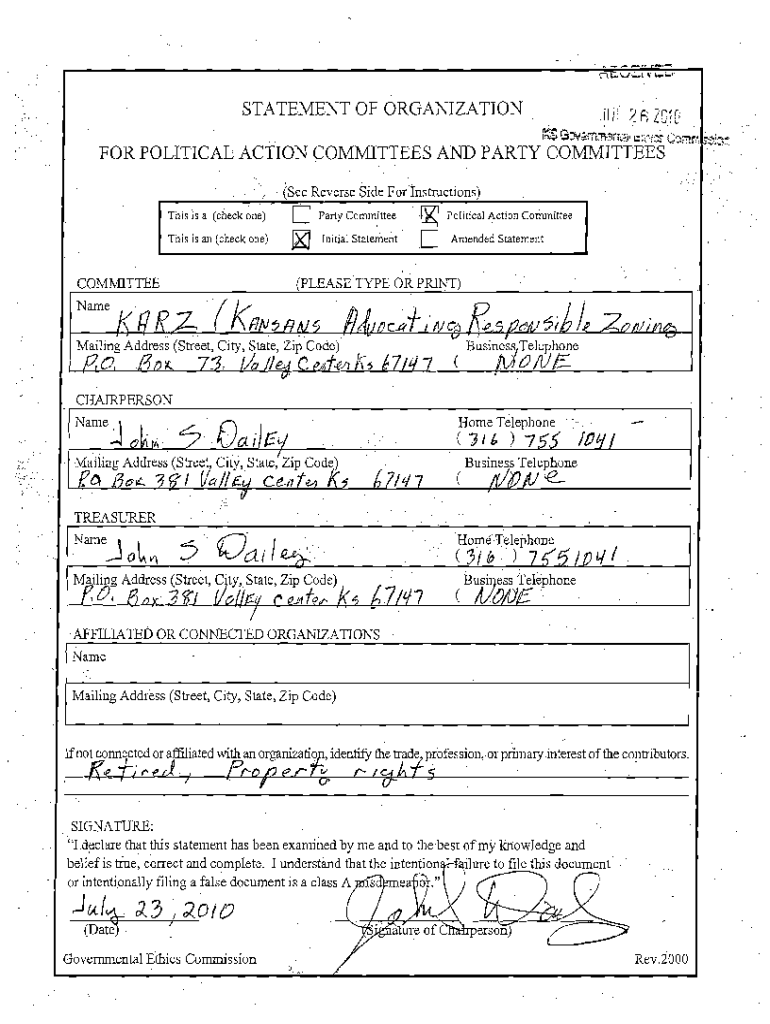 RECEIVED
STATEMENT OF ORGANIZATION
JUL 26 2010
KS Governmental Ethics Commission
FOR POLITICAL ACTION COMMITTEES AND PARTY COMMITTEES
(See Reverse Side For Instructions)
This is a (check one) Party Committee X Political Action Committee
This is an (check one) X Initial Statement Amended Statement
COMMITTEE (PLEASE TYPE OR PRINT)
Name
KARZ (KANSANS Advocating Responsible Zoning
Mailing Address (Street, City, State, Zip Code) Business Telephone
P.O. Box 73. Valley Center Ks 67147 ( NONE
CHAIRPERSON
Name Home Telephone
John S DailEy (316) 755 1041
Mailing Address (Street, City, State, Zip Code) Business Telephone
PO Box 381 VallEy Center Ks 67147 ( NONe
TREASURER
Name Home Telephone
John S Dailey (316) 755 1041
Mailing Address (Street, City, State, Zip Code) Business Telephone
P.O. Box 381 VallEy Center Ks 67147 ( NONE
AFFILIATED OR CONNECTED ORGANIZATIONS
Name
Mailing Address (Street, City, State, Zip Code)
If not connected or affiliated with an organization, identify the trade, profession, or primary interest of the contributors.
Retired, Property rights
SIGNATURE:
"I declare that this statement has been examined by me and to the best of my knowledge and
belief is true, correct and complete. I understand that the intentional failure to file this document
or intentionally filing a false document is a class A misdemeanor."
July 23, 2010
(Date) (Signature of Chairperson)
Governmental Ethics Commission Rev.2000